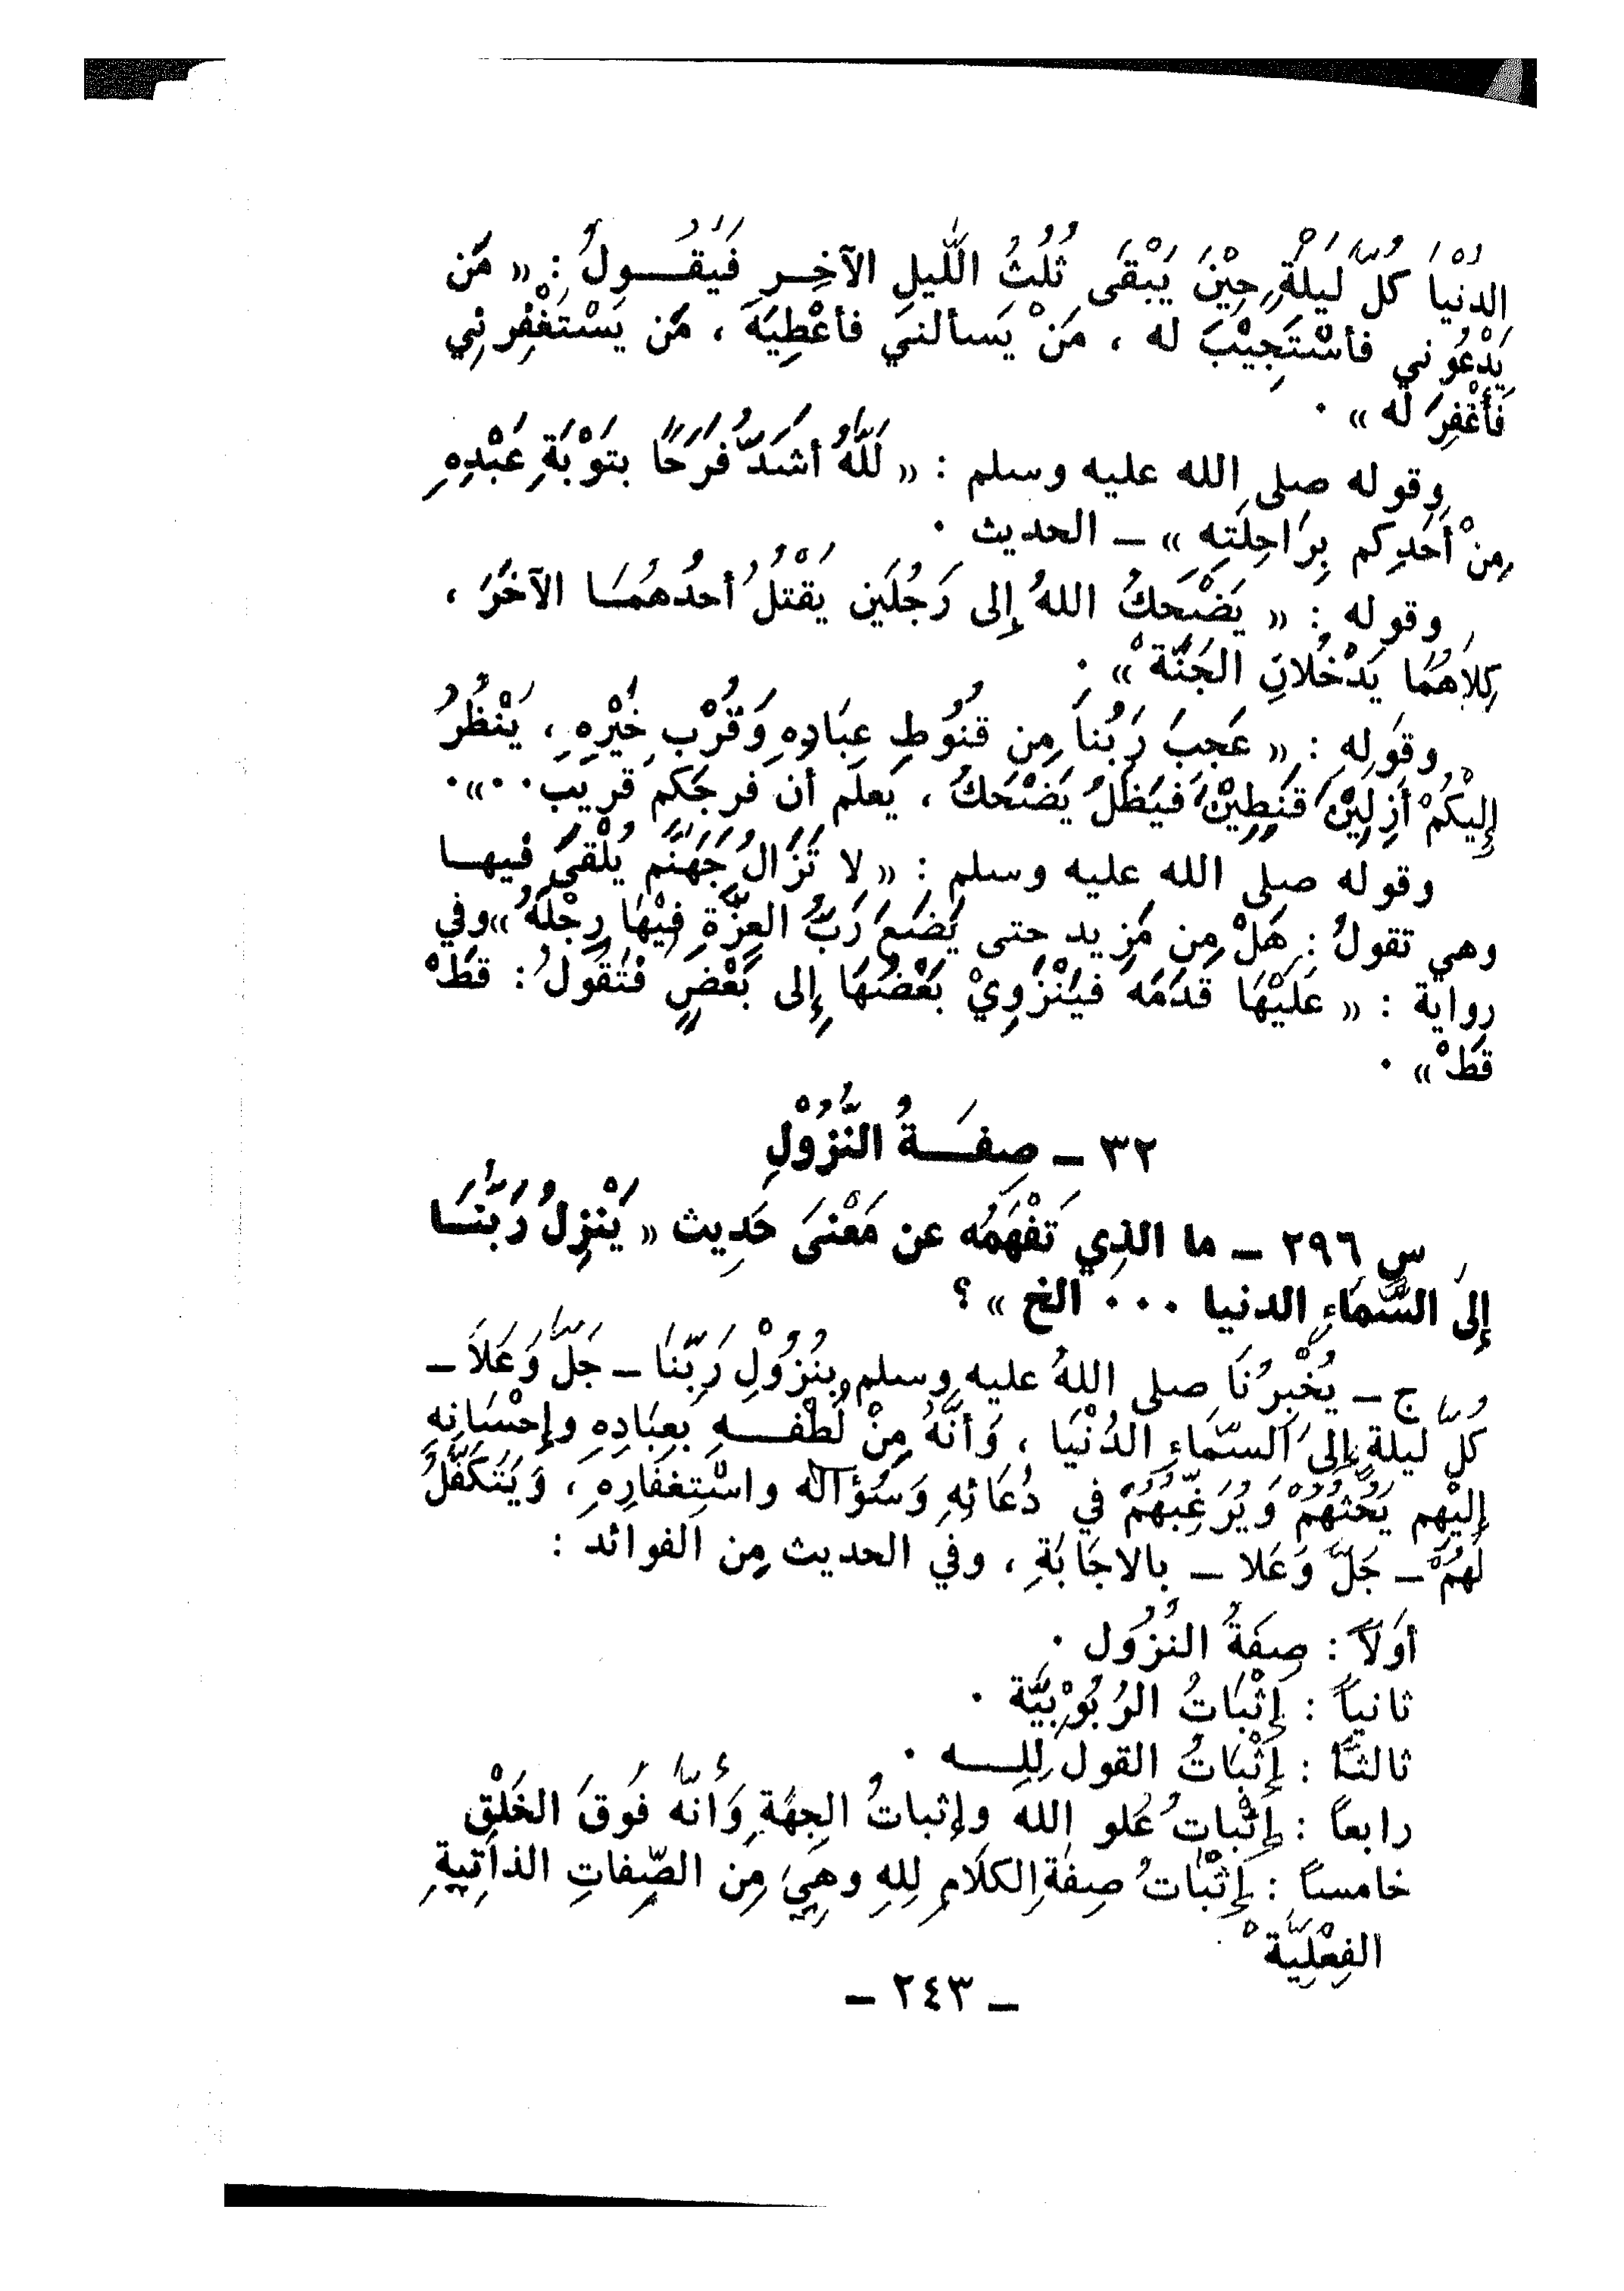 الدُنْيَا كُلَّ لَيلَةٍ حِيْنَ يَبْقَى ثُلُثُ اللَّيلِ الآخِرِ فَيَقُولُ : « مَن
يَدْعُوني فأسْتَجِيْبَ له ، مَنْ يَسألني فأعْطِيَهَ ، مَن يَسْتَغْفِرنِي
فَأغْفِرَ له » .
وقوله صلى الله عليه وسلم : « لَلَّهُ أشَدُّ فَرَحًا بتَوْبَةِ عَبْدِهِ
مِنْ أحَدِكم بِرَاحِلَتِهِ » ـ الحديث .
وقوله : « يَضْحَكُ اللهُ إلى رَجُلَين يَقْتُلُ أحدُهُمَا الآخَرَ ،
كِلاَهُمَا يَدْخُلانِ الجَنَّةْ » .
وقَوله : « عَجِبَ رَبُّناَ مِن قنُوطِ عِبَادِهِ وَقُرْبِ خَيْرِهِ ، يَنْظُرُ
إليْكُمْ أزِلِيْنَ قَنِطِيْنَ فَيَظَلُ يَضْحَكُ ، يَعلَم أن فَرجَكم قريَب . . » .
وقوله صلى الله عليه وسلم : « لا تَزَالُ جَهَنَّم يُلْقَىَ فيها
وهي تقولُ : هَلْ مِن مَزيد حتى يَضَعَ رَبُّ العِزَّةِ فِيْهَا رِجْلَهُ » وفي
رواية : « عَلَيْهَا قَدَمَه فيَنْزَوِيْ بَعْضُهَا إلى بَعْضٍ فتَقُولُ : قَطْ
قَطْ » .
٣٢ ـ صِفَةُ النُّزُوْلِ
س ٢٩٦ ـ ما الذِي تَفْهَمُه عن مَعْنىَ حَدِيث « يَنْزِلُ رَبُّنَا
إلىَ السَّمَاءِ الدنيا . . . الخ » ؟
ج ـ يُخْبِرُنَا صلى اللهُ عليه وسلم بنُزُوْلِ رَبِّنَا ـ جَلَّ وَعَلاَ ـ
كُلَّ ليلةٍ إلىَ السَّمَاءِ الدُنْيَا ، وَأنَّهُ مِنْ لُطْفِهِ بعِبَادِهِ وإحْسَانِهِ
إليْهِم يَحُثُّهُمْ وَيُرَغِّبُهُمْ في دُعَائِهِ وَسُؤاله واسْتِغفَارِهِ ، وَيَتَكَفَّلُ
لَهُمْ ـ جَلَّ وَعَلا ـ بالاجَابَةِ ، وفي الحديث مِن الفوائد :
أوَلاً : صِفَةُ النُزُول .
ثانياً : إثْبَاتُ الرُبُوْبِيَّة .
ثالثاً : إثْبَاتُ القول لِلِه .
رابعاً : إثْباتُ عُلو الله وإثباتُ الجِهَةِ وَأنَّه فَوقَ الخَلْقِ
خامساً : إثْبَاتُ صِفَةِ الكلَامِ لِلِه وهِيَ مِن الصِّفاتِ الذاتِيةِ
الفِعْلِيَّةْ .
ـ ٢٤٣ ـ